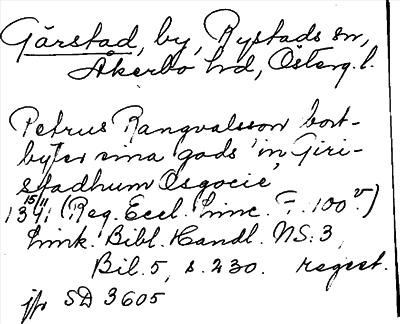 Gärstad, by, Rystads sn,
Åkerbo hd, Österg. l.
Petrus Rangvalsson bort-
byter sina gods 'in Giri-
stadhum Osgocie'
13 15/11 41 (Reg. Eccl. Linc. F. 100 v.)
Link. Bibl. Handl. NS: 3,
Bil. 5, s. 230. regest.
jfr SD 3605